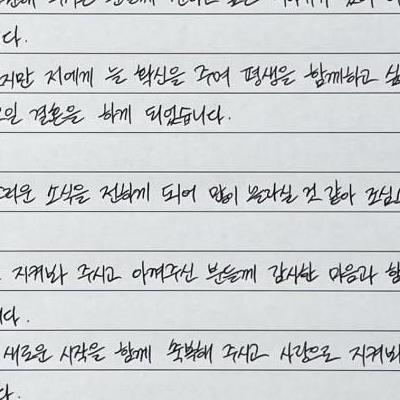 니다.
지만 저에게 늘 확신을 주며 평생을 함께하고 싶
인 결혼을 하게 되었습니다.
운 소식을 전하게 되어 많이 놀라실 것 같아 조심스
지켜봐 주시고 아껴주신 분들께 감사한 마음과 함
니다.
새로운 시작을 함께 축복해 주시고 사랑으로 지켜봐
다.